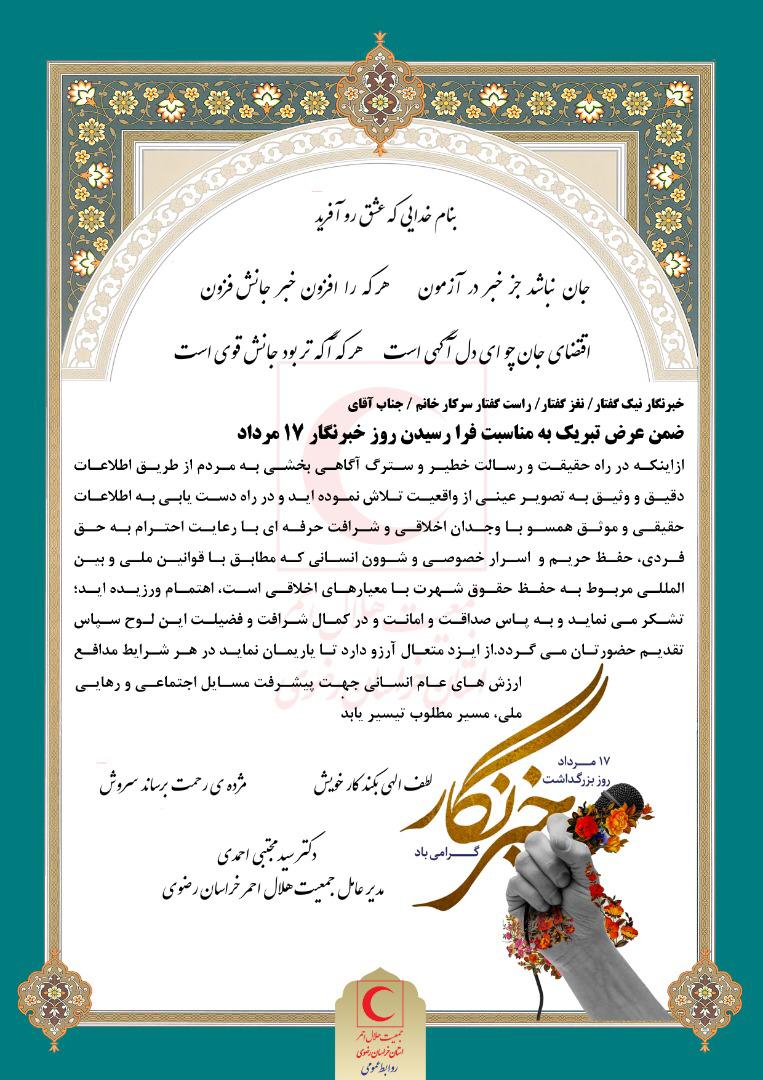 بنام خدایی که عشق رو آفرید
جان نباشد جز خبر در آزمون هر که را افزون خبر جانش فزون
اقتضای جان چو ای دل آگهی است هر که آگه تر بود جانش قوی است
خبرنگار نیک گفتار/ نغز گفتار/ راست گفتار سرکار خانم / جناب آقای
ضمن عرض تبریک به مناسبت فرا رسیدن روز خبرنگار ۱۷ مرداد
ازاینکه در راه حقیقت و رسالت خطیر و سترگ آگاهی بخشی به مردم از طریق اطلاعات
دقیق و وثیق به تصویر عینی از واقعیت تلاش نموده اید و در راه دست یابی به اطلاعات
حقیقی و موثق همسو با وجدان اخلاقی و شرافت حرفه ای با رعایت احترام به حق
فردی، حفظ حریم و اسرار خصوصی و شوون انسانی که مطابق با قوانین ملی و بین
المللی مربوط به حفظ حقوق شهرت با معیارهای اخلاقی است، اهتمام ورزیده اید؛
تشکر می نماید و به پاس صداقت و امانت و در کمال شرافت و فضیلت این لوح سپاس
تقدیم حضورتان می گردد.از ایزد متعال آرزو دارد تا یاریمان نماید در هر شرایط مدافع
ارزش های عام انسانی جهت پیشرفت مسایل اجتماعی و رهایی
ملی، مسیر مطلوب تیسیر یابد
جمعیت هلال احمر
استان خراسان رضوی
۱۷ مرداد
روز بزرگداشت
خبرنگار
گرامی باد
لطف الهی بکند کار خویش مژده ی رحمت برساند سروش
دکتر سید مجتبی احمدی
مدیر عامل جمعیت هلال احمر خراسان رضوی
جمعیت هلال احمر
استان خراسان رضوی
روابط عمومی